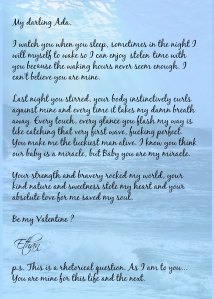 My darling Ada,
I watch you when you sleep, sometimes in the night I
will myself to wake so I can enjoy stolen time with
you because the waking hours never seem enough. I
can't believe you are mine.
Last night you stirred, your body instinctively curls
against mine and even now it takes my damn breath
away. Every touch, every glance you flash my way is
like catching that very first wave, fucking perfect.
You make me the luckiest man alive. I know you think
our baby is a miracle, but Baby you are my miracle.
Your strength and bravery rocked my world, your
kind nature and sweetness stole my heart and your
absolute love for me saved my soul.
Be my Valentine ?
Ethan
p.s. This is a rhetorical question. As I am to you...
You are mine for this life and the next.